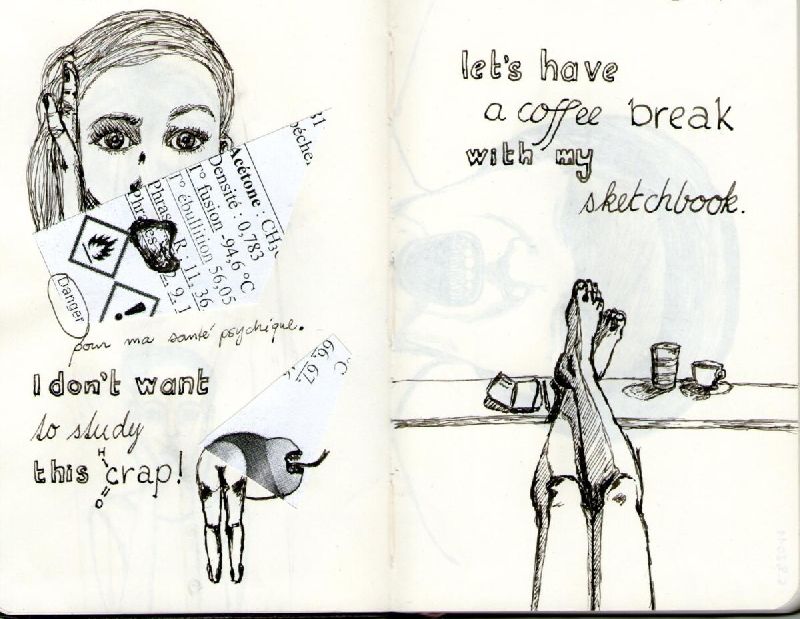 Acétone : CH3C
Densité : 0,783
T° fusion -94,6 °C
T° ébullition 56,05
Phras R : 11, 36,
Phr 2, 9, 1
31
pêche.
Danger
pour ma santé psychique.
66,
67,
°C
I don't want
to study
this crap!
H
O
let's have
a coffee break
with my
sketchbook.